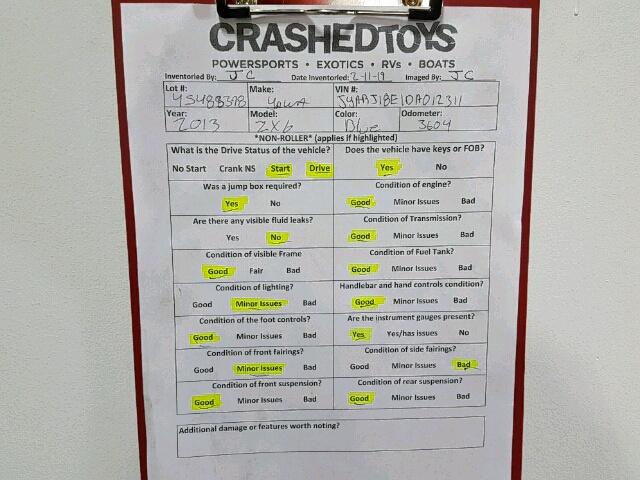 CRASHEDTOYS
POWERSPORTS • EXOTICS • RVs • BOATS
Inventoried By: JC Date Inventoried: 2-11-19 Imaged By: JC
Lot #: Make: VIN #:
45488398
Year: Model: Color: Odometer:
2013 ZX6 Blue 3604
*NON-ROLLER* (applies if highlighted)
What is the Drive Status of the vehicle? Does the vehicle have keys or FOB?
No Start Crank NS Start Drive Yes No
Was a jump box required? Condition of engine?
Yes No Good Minor Issues Bad
Are there any visible fluid leaks? Condition of Transmission?
Yes No Good Minor Issues Bad
Condition of visible Frame Condition of Fuel Tank?
Good Fair Bad Good Minor Issues Bad
Condition of lighting? Handlebar and hand controls condition?
Good Minor Issues Bad Good Minor Issues Bad
Condition of the foot controls? Are the instrument gauges present?
Good Minor Issues Bad Yes Yes/has issues No
Condition of front fairings? Condition of side fairings?
Good Minor Issues Bad Good Minor Issues Bad
Condition of front suspension? Condition of rear suspension?
Good Minor Issues Bad Good Minor Issues Bad
Additional damage or features worth noting?